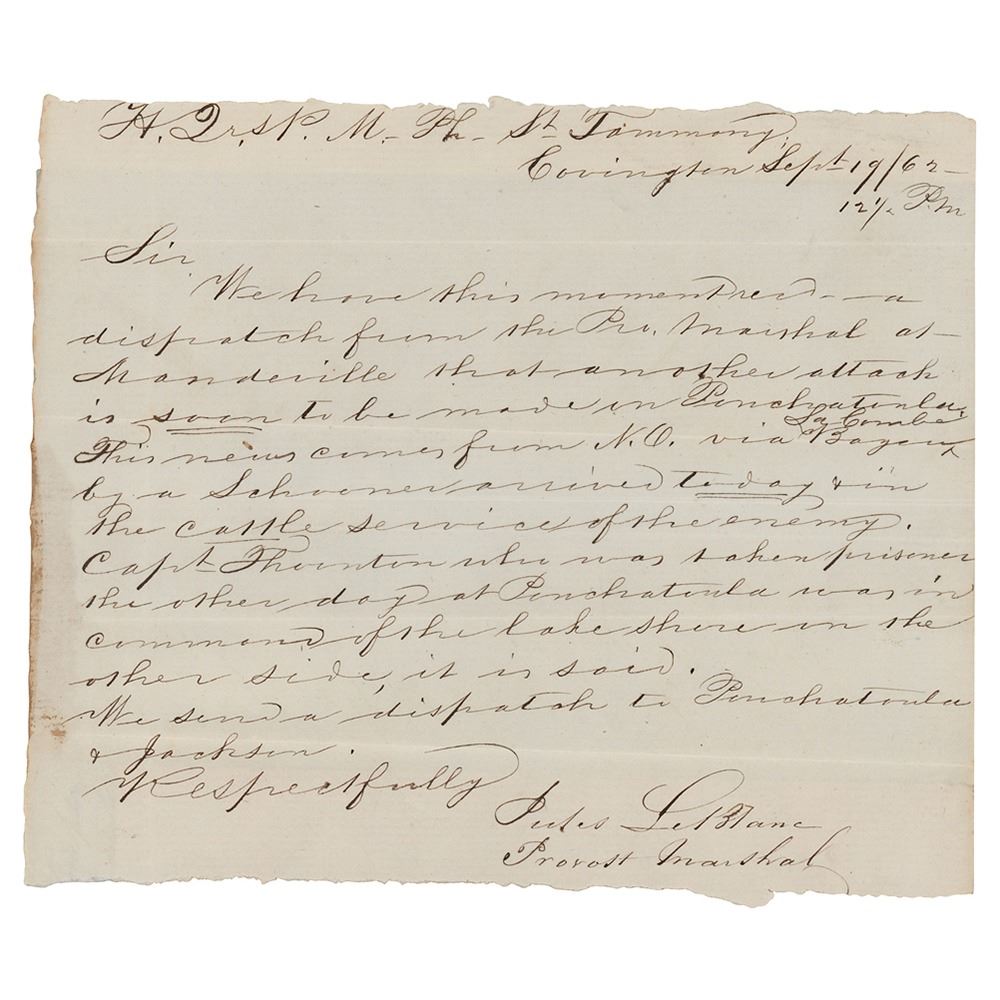 H. Qrs P. M. Ph. St Tammany,
Covington Sept 19/62
12½ P.M
Sir,
We have this moment recd a
dispatch from the Pro. Marshal at
Mandeville that another attack
is soon to be made on Ponchatoula.
La Combe
This news comes from N.O. via Bayou
by a Schooner arrived today & in
the cattle service of the enemy.
Capt Thornton who was taken prisoner
the other day at Ponchatoula was in
command of the lake shore on the
other side, it is said.
We send a dispatch to Ponchatoula
& Jackson.
Respectfully
Jules LeBlanc
Provost Marshal